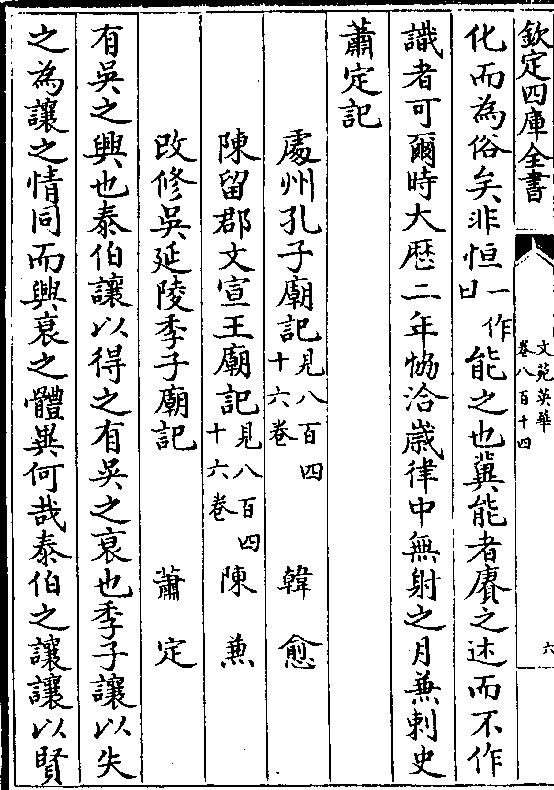 欽定四庫全書
文苑英華
卷八百十四
六
化而為俗矣非恒一作曰能之也冀能者賡之述而不作
識者可爾時大厯二年恊洽嵗律中無射之月兼刺史
蕭定記
處州孔子廟記見八百四十六卷 韓愈
陳留郡文宣王廟記見八百四十六卷 陳兼
改修吳延陵季子廟記 蕭定
有吳之興也泰伯讓以得之有吳之衰也季子讓以失
之為讓之情同而興衰之體異何哉泰伯之讓讓以賢